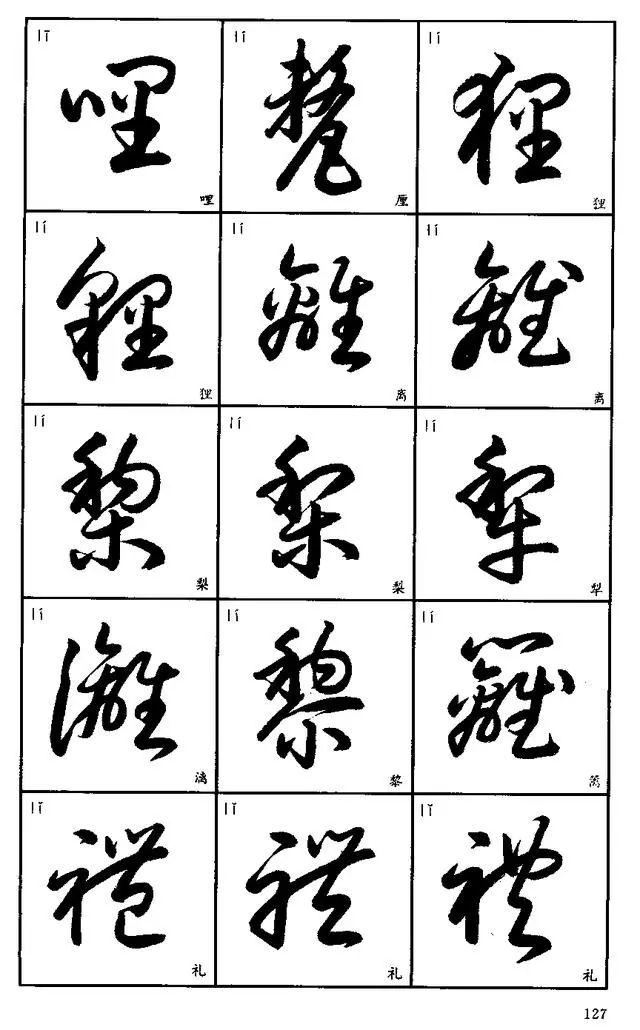 lī lí lí
哩 狸
哩 厘 狸
lí lí lí
貍 離 離
狸 离 离
lí lí lí
梨 梨 犁
梨 梨 犁
lí lí lí
灕 黎 籬
漓 黎 篱
lǐ lǐ lǐ
禮 禮 禮
礼 礼 礼
127